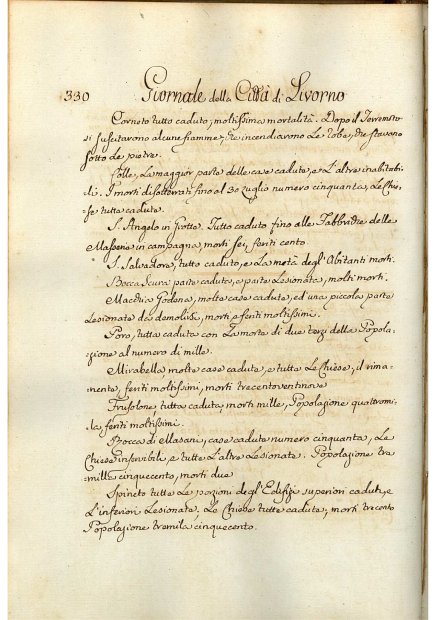 330 Giornale della Città di Livorno
Corneto tutto caduto, moltissima mortalità. Dopo il Terremoto
si suscitarono alcune fiamme, che incendiarono le robe, che stavano
sotto le pietre.
Colle, la maggior parte delle case caduta, e l'altre inabitabi=
li. I morti disotterrati fino al 30 luglio numero cinquanta, le Chie=
se tutte cadute.
S. Angelo in Grotte. Tutto caduto fino alle Fabbriche delle
Masserie in campagna, morti sei, feriti cento.
S. Salvadore, tutto caduto, e la metà degl'Abitanti morti.
Bocca Scura parte caduta, e parte lesionata, molti morti.
Macchia Godena, molte case cadute, ed una piccola parte
lesionata da demolirsi, morti, e feriti moltissimi.
Toro, tutta caduta con la morte di due terzi della Popola=
zione al numero di mille.
Mirabella molte case cadute, e tutte le Chiese, il rima=
nente, feriti moltissimi, morti trecentoventinove
Frusolone tutta caduta, morti mille, Popolazione quattromi=
la, feriti moltissimi.
Rocca di Masani, case cadute numero cinquanta, le
Chiese inservibili, e tutte l'altre lesionate. Popolazione tre
mille cinquecento, morti due
Spineto tutte le porzioni degl'Edifizj superiori cadute, e
l'inferiori lesionate, le Chiese tutte cadute, morti trecento
Popolazione tremila cinquecento.